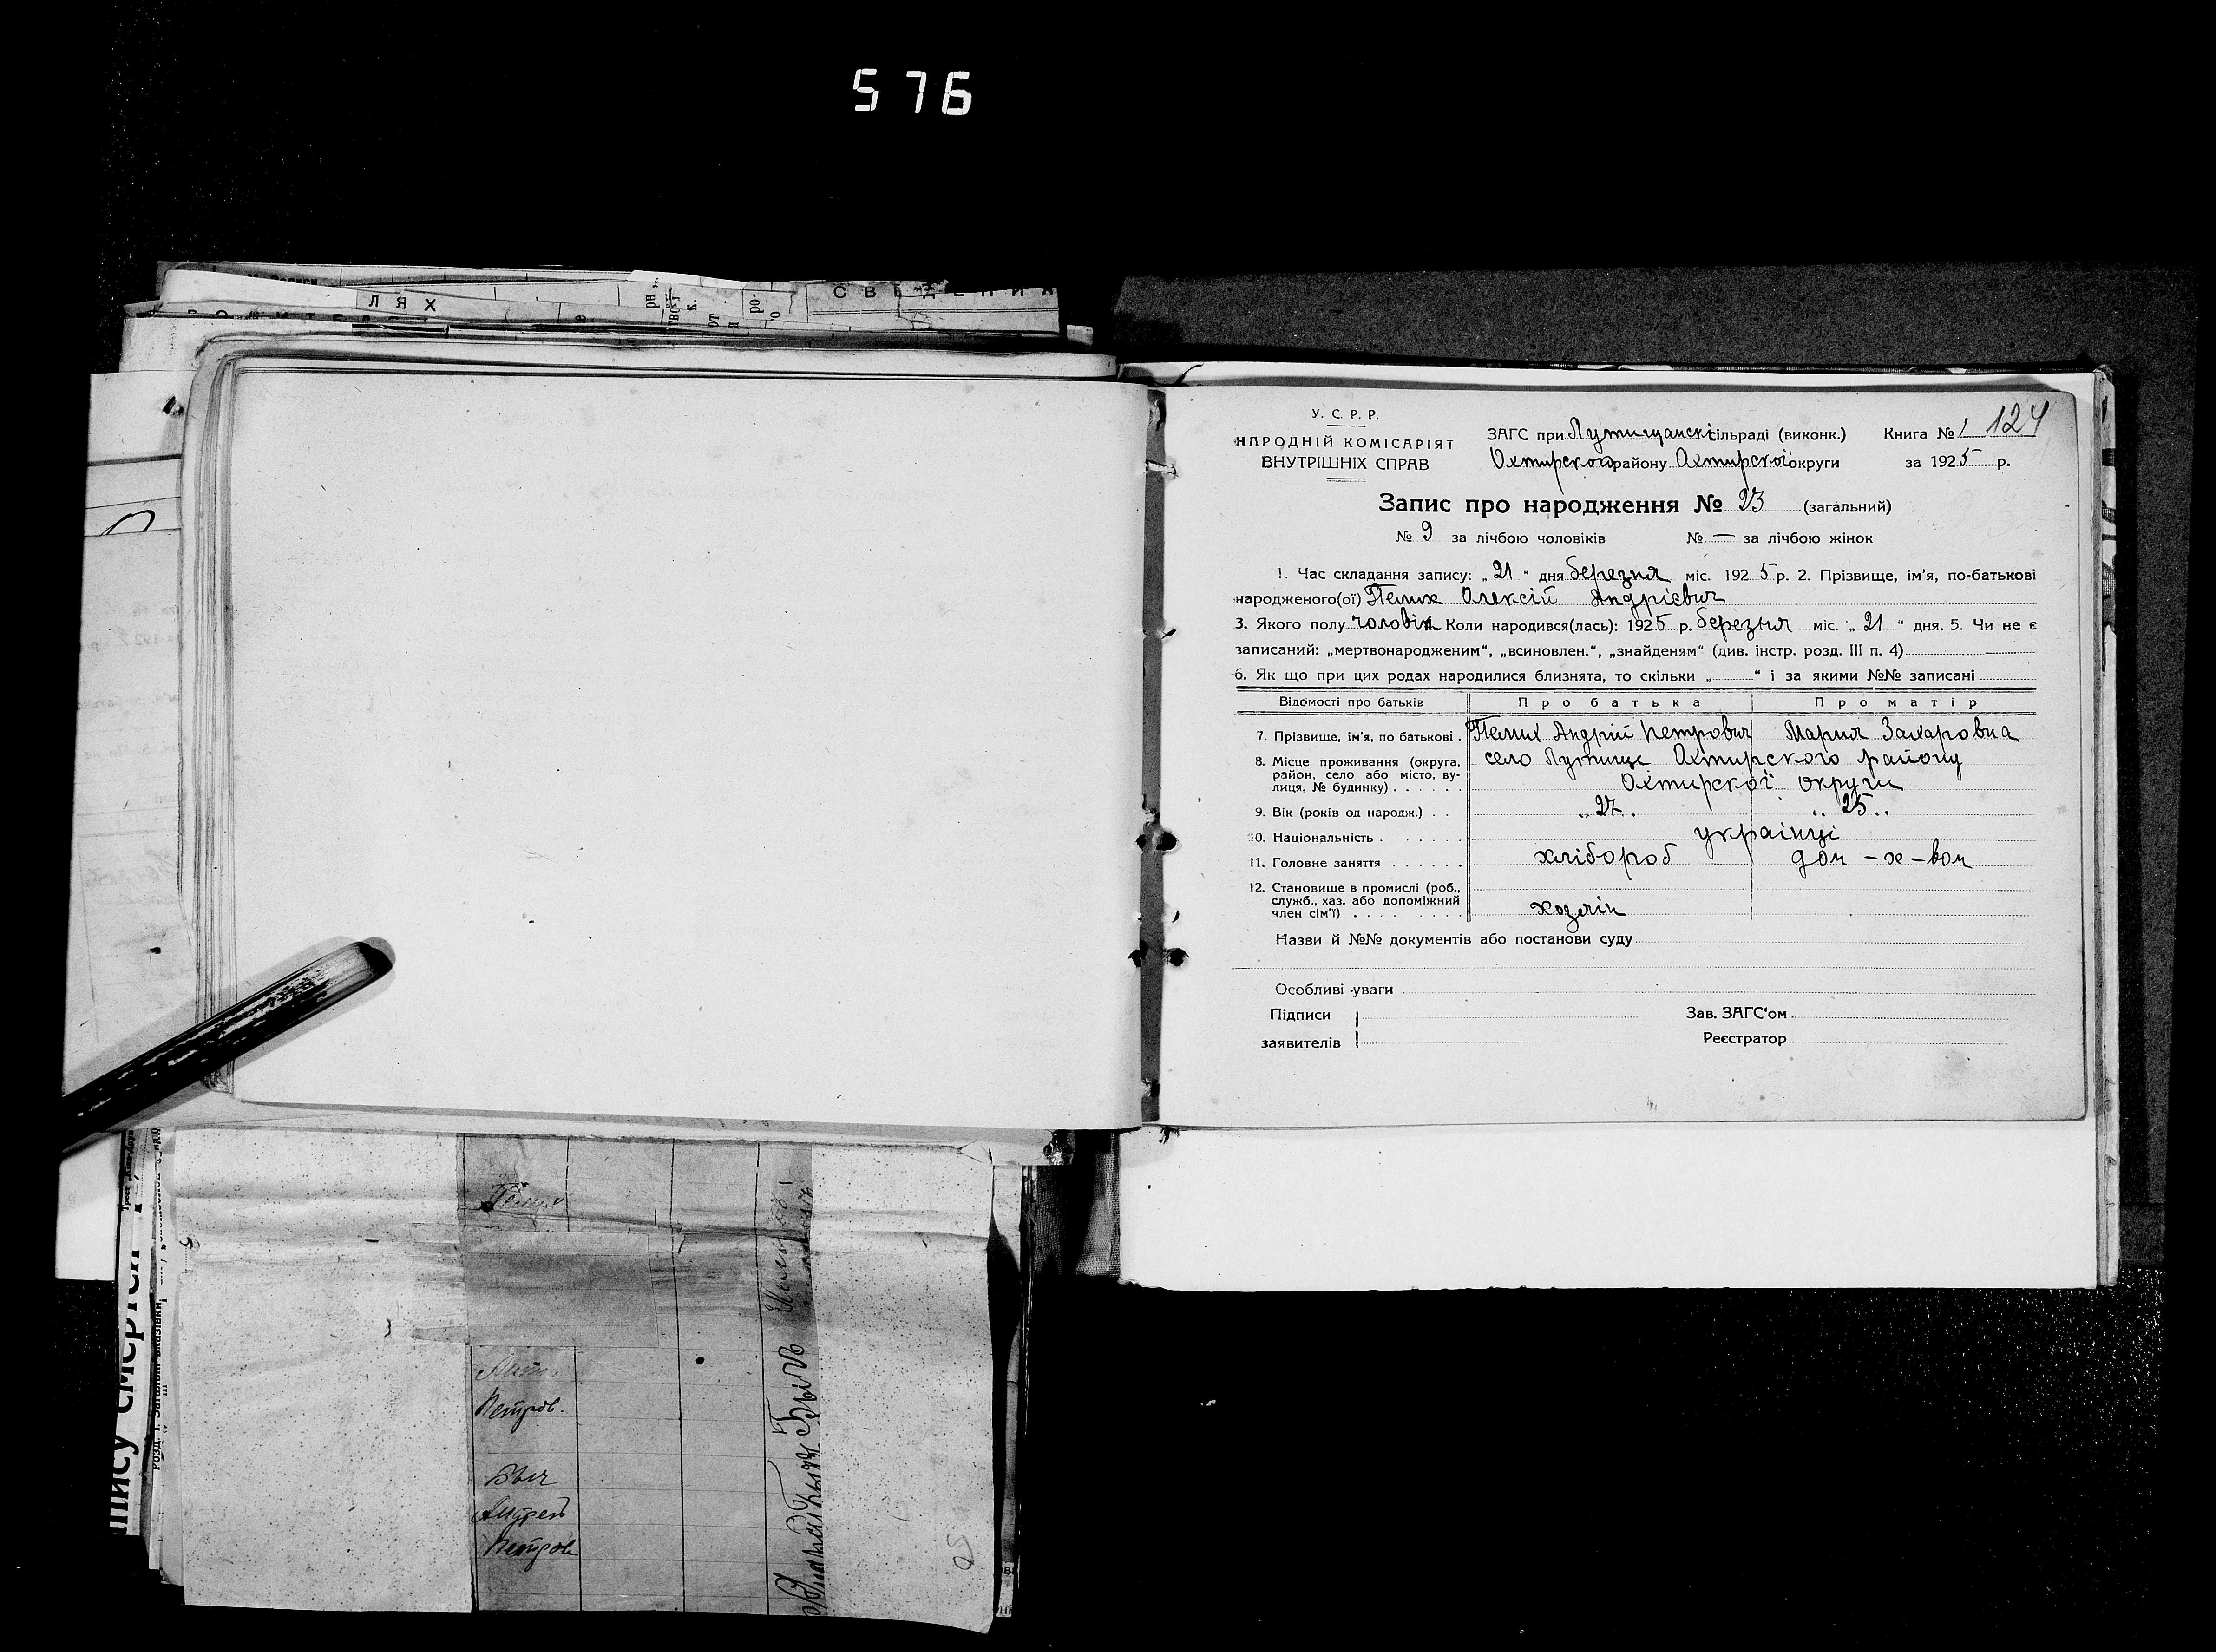 576
ЛЯХ
У. С. Р. Р.
НАРОДНІЙ КОМІСАРІЯТ
ВНУТРІШНІХ СПРАВ
ЗАГС при Лутищанскі сільраді (виконк.)
Охтирского району Охтирскої округи
Книга № 1 124
за 1925 р.
Запис про народження № 23 (загальний)
№ 9 за лічбою чоловіків № — за лічбою жінок
1. Час складання запису: „ 21 “ дня березня міс. 1925 р. 2. Прізвище, ім'я, по-батькові
народженого(ої) Пелих Олексій Андрієвич
3. Якого полу чоловік Коли народився(лась): 1925 р. березня міс. „ 21 “ дня. 5. Чи не є
записаний: „мертвонародженим“, „всиновлен.“, „знайденям“ (див. інстр. розд. III п. 4)
6. Як що при цих родах народилися близнята, то скільки „ “ і за якими №№ записані
Відомості про батьків Про батька Про матір
7. Прізвище, ім'я, по батькові . Пелих Андрій Петрович Мария Захаровна
8. Місце проживання (округа, село Лутище Охтирского району
район, село або місто, ву-
лиця, № будинку) . . . . . . Охтирскої округи
9. Вік (років од народж.) . . „ 27 . „ 25 „
10. Національність . . . . . . украінці
11. Головне заняття . . . . . . хлібороб дом – х – вом
12. Становище в промислі (роб.,
служб., хаз. або допоміжний
член сім'ї) . . . . . . . . хозяін
Назви й №№ документів або постанови суду
Особливі уваги
Підписи
заявителів
Зав. ЗАГС'ом
Реєстратор
Петров.
Андрей
Петров